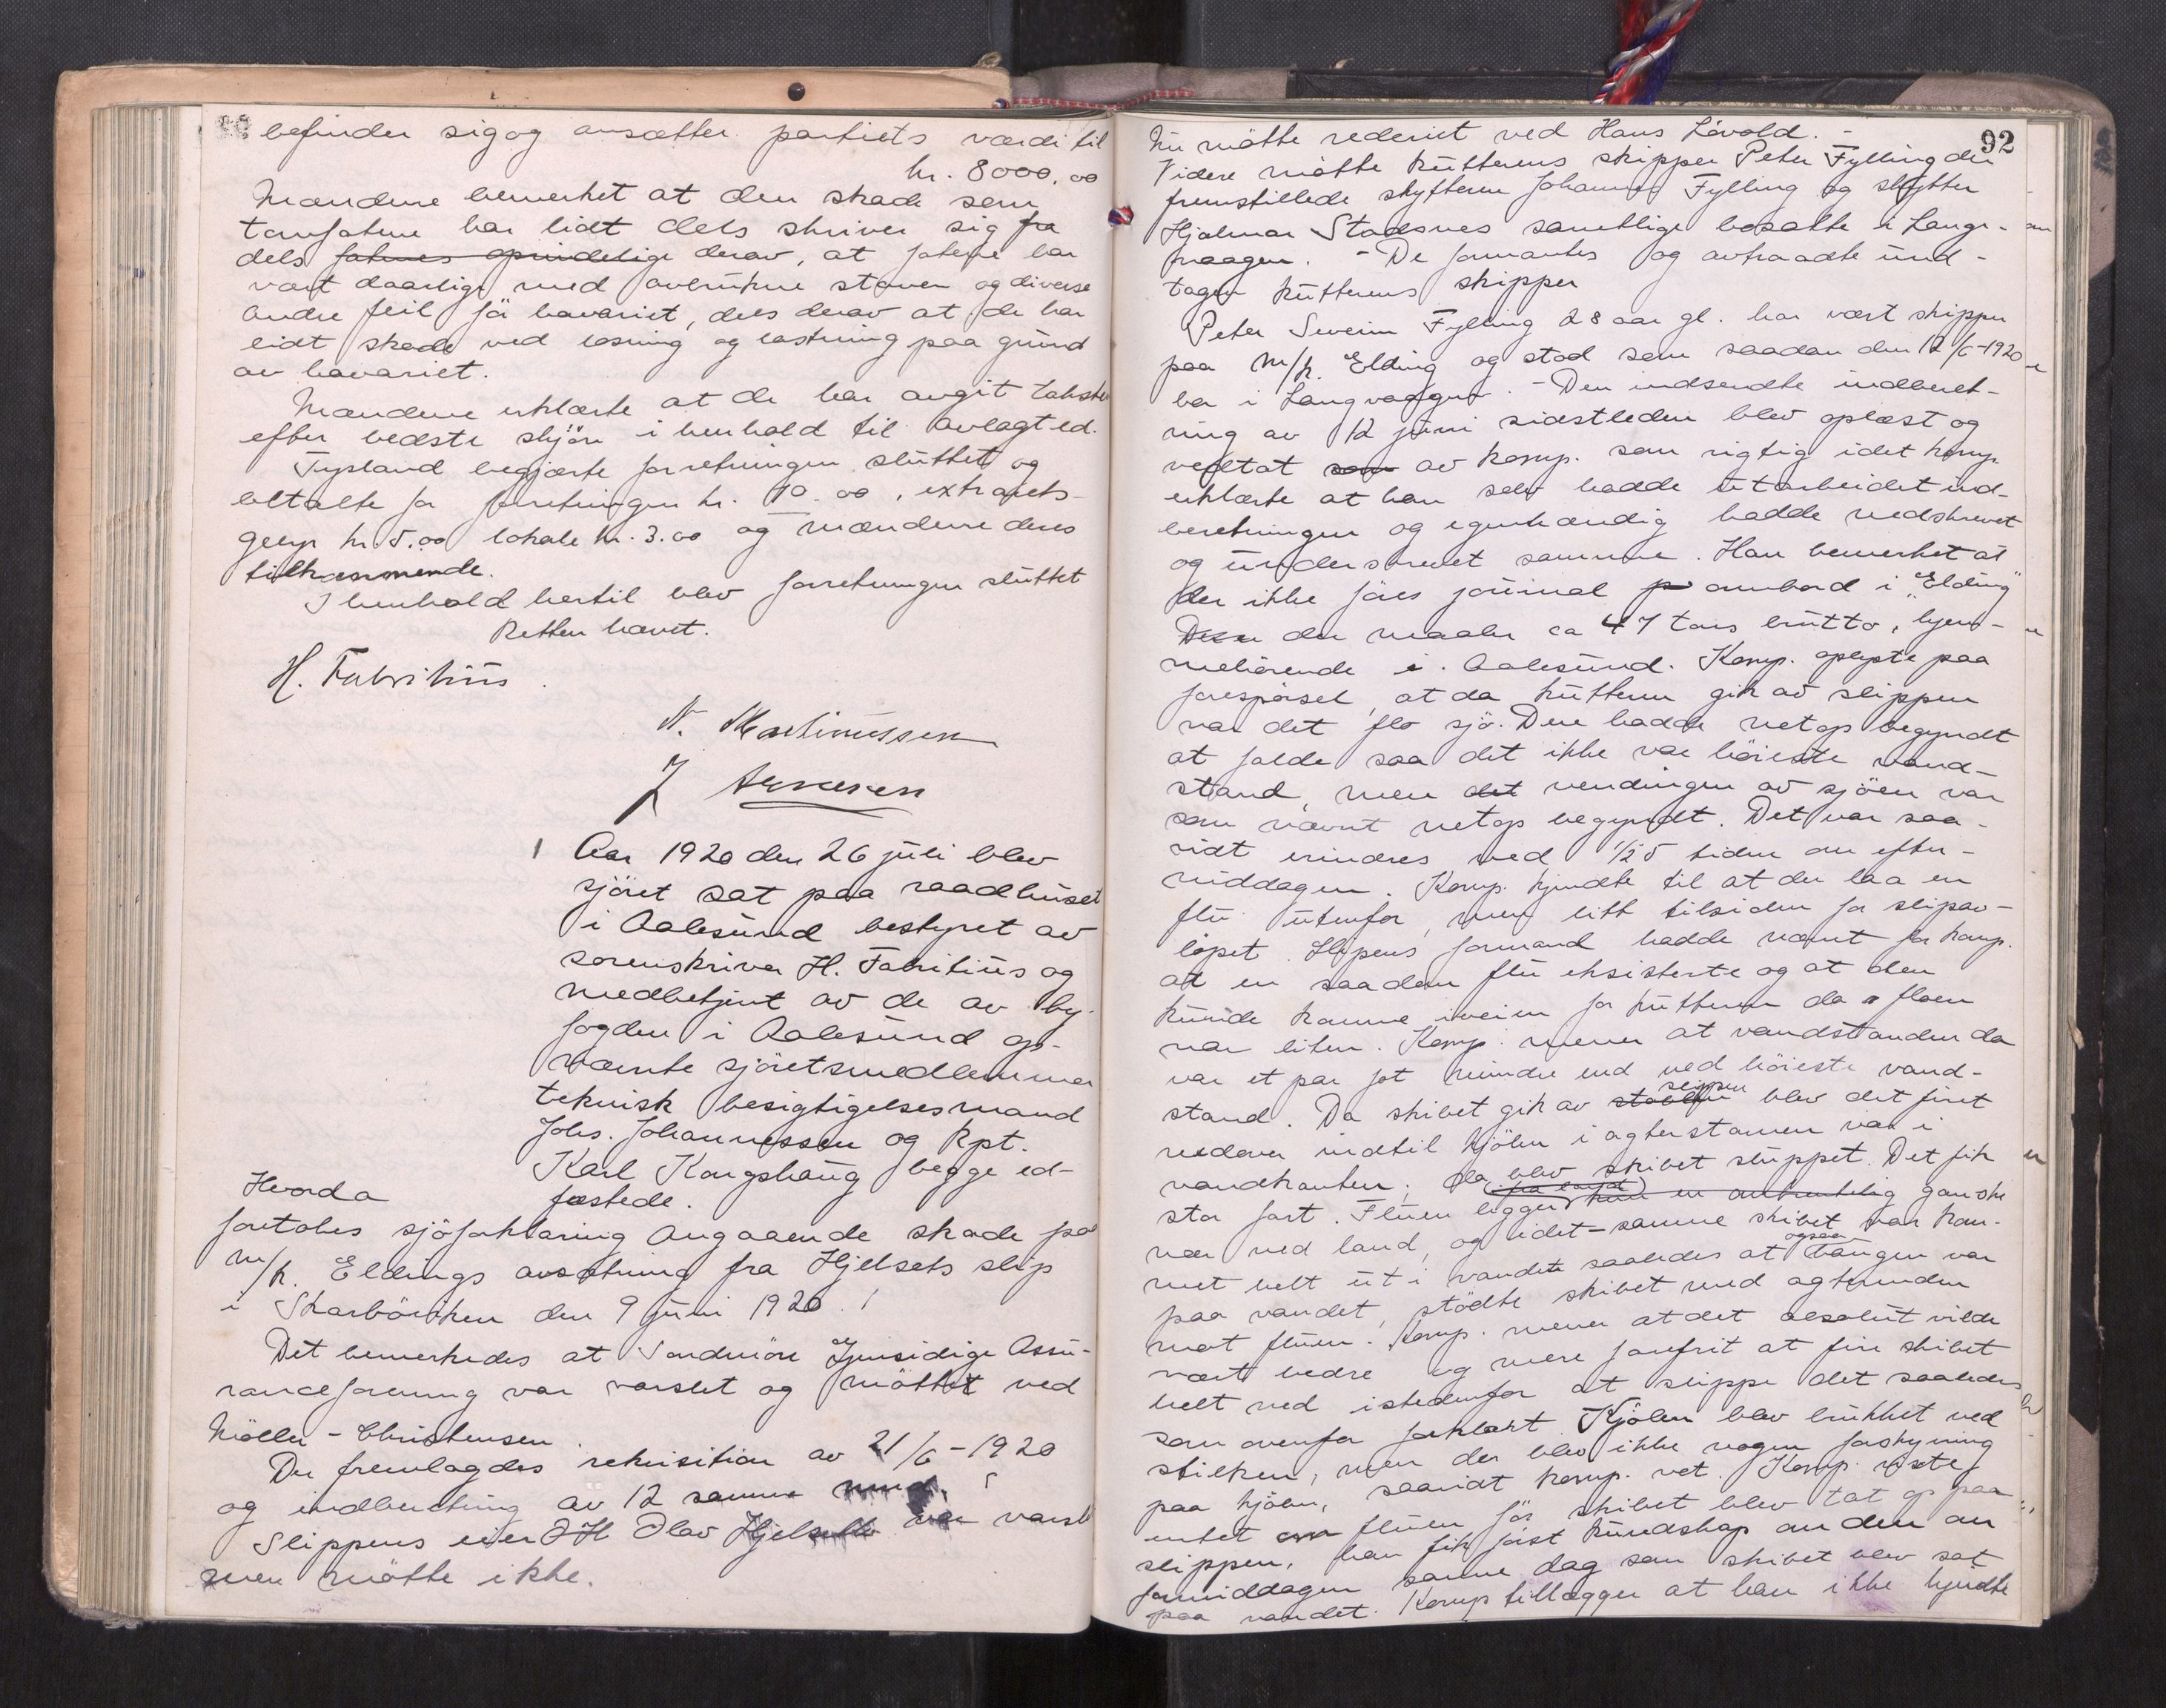 befinder sig og ansætter partiets værdi til
kr. 8000,00
Mændene bemerket at den skade som
tønfatene har lidt dels skriver sig fra
dels fatenes oprindelige derav, at fatene har
vært daarlige med avbrukne staver og diverse
andre feil før havariet, dels derav at de har
lidt skade ved losning og lastning paa grund
av havariet.
Mændene erklærte at de har avgit taksten
efter bedste skjøn i henhold til avlagt ed.
Tysland begjærte forretningen sluttet og
betalte for forretningen kr. 10.00, extrarets-
gebyr kr. 5.00 lokale kr. 3.00 og mændene deres
tilkommende.
I henhold hertil blev forretningen sluttet
Retten hævet.
H. Fabritius.
N. Martinussen
J Arnesen
1 Aar 1920 den 26 juli blev
sjøret sat paa raadhuset
i Aalesund bestyret av
sorenskriver H. Fabritius og
medbetjent av de av by-
fogden i Aalesund op-
nævnte sjøretsmedlemmer
teknisk besigtigelsesmand
Johs. Johannessen og kpt.
Karl Kongshaug begge ed-
fæstede.
Hvorda
foretokes sjøforklaring angaaende skade paa
m/k. Eldings avsætning fra Hjelsets slip
i Skarbøviken den 9 juni 1920. /
Det bemerkedes at Søndmøre Gjensidige Assu-
ranceforening var varslet og møttet ved
Møller-Christensen.
Der fremlagdes rekvisition av 21/6-1920
og indberetning av 12 samme mnd.
Slippens eier Olav Hjelseth var varslet
men møtte ikke.
92
Nu møtte rederiet ved Hans Løvold. -
Videre møtte kutterens skipper Peter Fylling der
fremstillede skytteren Johannes Fylling og skytter
Hjalmar Stadsnes samtlige bosatte i Lange-
vaagen. - De formantes og avtraadte und-
tagen kutterens skipper
Peter Severin Fylling 28 aar gl. har vært skipper
paa m/k. Elding og stod som saadan den 12/6-1920
bor i Langvaagen. - Den indsendte indberet-
ning av 12 juni sidstleden blev oplæst og
vedtat som av komp. som rigtig idet komp.
erklærte at han selv hadde utarbeidet ind-
beretningen og egenhændig hadde nedskrevet
og underskrevet samme. Han bemerket at
der ikke føres journal p ombord i "Elding"
Desse der maaler ca 47 tons brutto, hjem-
mehørende i Aalesund. Komp. oplyste paa
forespørsel, at da kutteren gik av slippen
var det flo sjø. Den hadde netop begyndt
at falde saa det ikke var høieste vand-
stand, men det vendingen av sjøen var
som nævnt netop begyndt. Det var saa-
vidt erindres ved 1/2 5 tiden om efter-
middagen. Komp. kjendte til at der laa en
flu utenfor, men litt tilsiden for slipav-
løpet. Slipens formand hadde nævnt for komp.
at en saadan flu eksisterte og at den
kunde komme iveien for kutteren da floen
var liten. Komp. mener at vandstanden da
var et par fot mindre end ved høieste vand-
stand. Da skibet gik av slippen blev det firet
nedover indtil kjølen i agterstamen var i
vandkanten, da blev skibet sluppet. Det fik
stor fart. Fluen ligger (fra land) kun en omtrentelig ganske
nær ved land, og idet samme skibet var kom-
met helt ut i vandet saaledes at ogsaa baugen var
paa vandet, stødte skibet med agterenden
mot fluen. Komp. mener at det absolut vilde
vært bedre og mere farefrit at fire skibet
helt ned istedenfor at slippe det saaledes
som ovenfor forklart. Kjølen blev brukket ved
stilken, men der blev ikke nogen forskyvning
paa kjølen, saavidt komp. vet. Komp. visste
intet om fluen før skibet blev tat op paa
slippen, han fik først kundskap om den om
formiddagen samme dag som skibet blev sat
paa vandet. Komp tillægger at han ikke kjendte